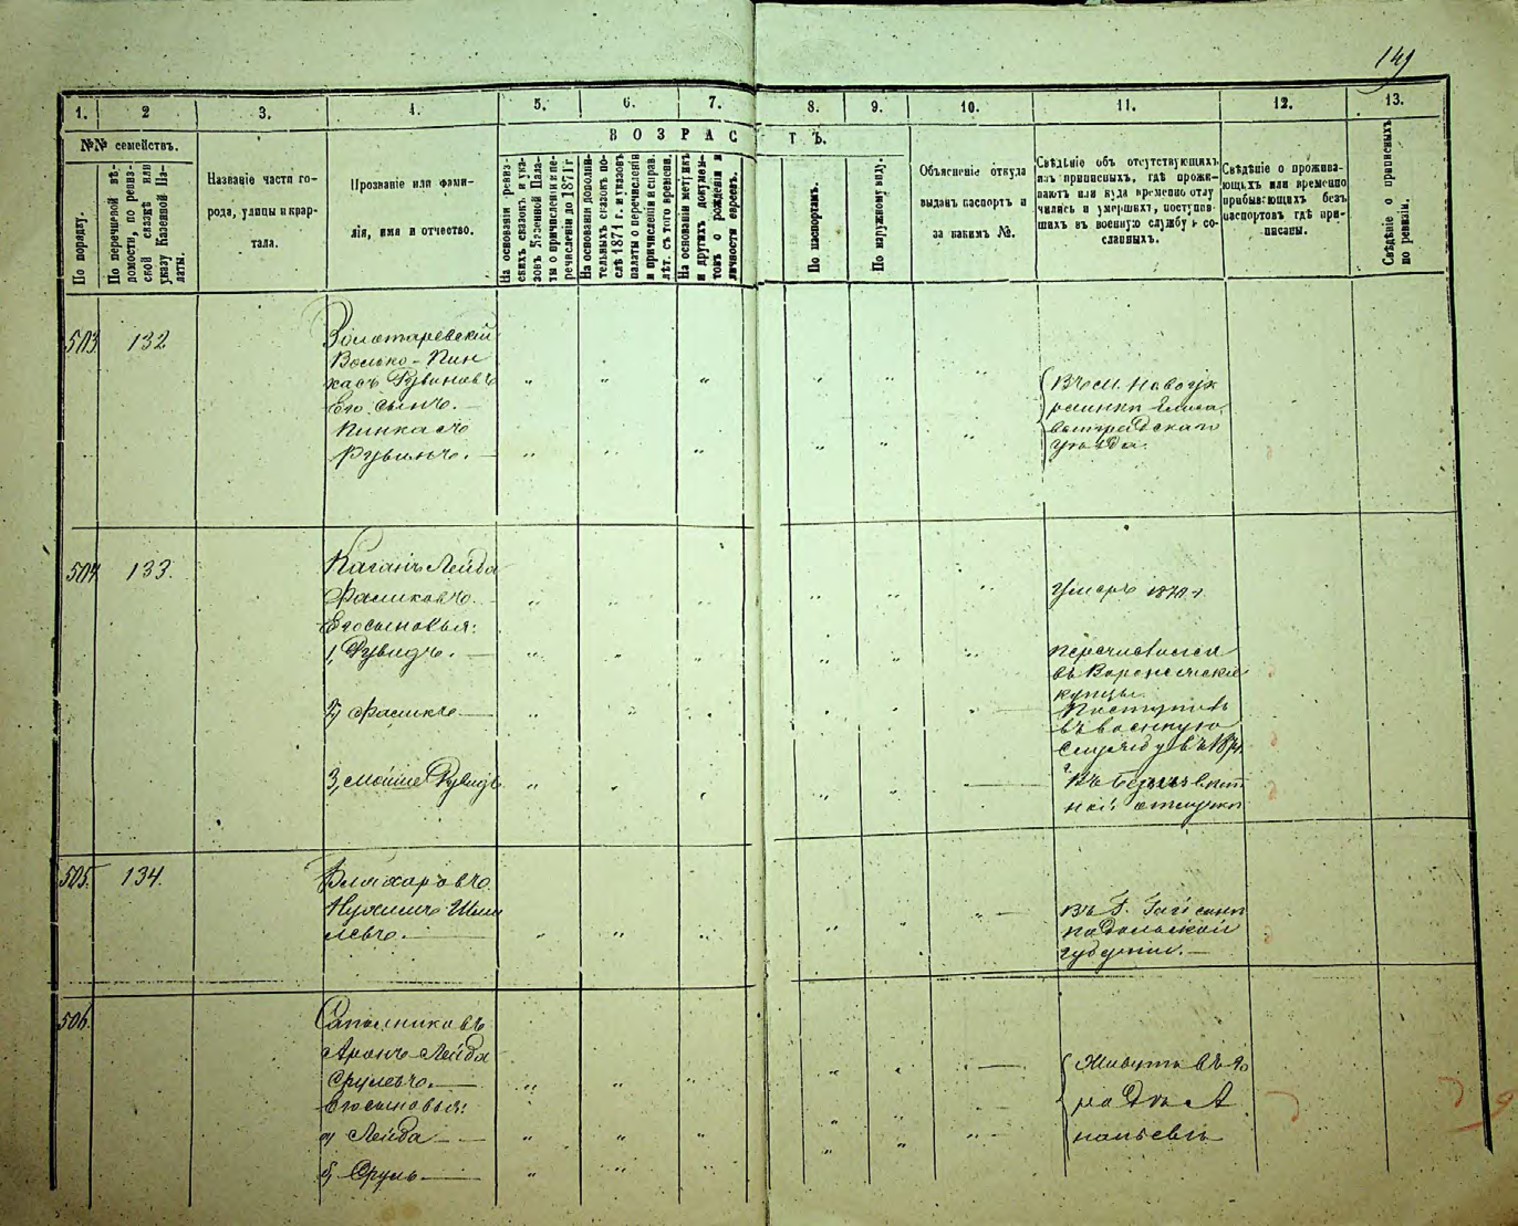 149
1. 2 3. 4. 5. 6. 7. 8. 9. 10. 11. 12. 13.
№№ семействъ.
По порядку.
По перечневой вѣ-
домости, по ревиз-
ской сказкѣ или
указу Казенной Па-
латы.
Названіе части го-
рода, улицы и квар-
тала.
Прозваніе или фами-
лія, имя и отчество.
ВОЗРАСТЪ.
На основаніи ревиз-
скихъ сказокъ и ука-
зовъ Казенной Пала-
ты о причисленіи и пе-
речисленіи до 1871 г.
На основаніи дополни-
тельныхъ сказокъ по-
слѣ 1871 г. и указовъ
палаты о перечисленіи
и причисленіи и справ.
лѣт. съ того времени.
На основаніи метрикъ
и другихъ докумен-
товъ о рожденіи и
личности евреевъ.
По паспортамъ.
По наружному виду.
Объясненіе откуда
выданъ паспортъ и
за какимъ №.
Свѣдѣніе объ отсутствующихъ
изъ приписныхъ, гдѣ прожи-
ваютъ или куда временно отлу
чились и умершихъ, поступив-
шихъ въ военную службу и со-
сланныхъ.
Свѣдѣніе о прожива-
ющихъ или временно
прибывающихъ безъ
паспортовъ гдѣ при-
писаны.
Свѣдѣніе о приписныхъ
по ревизіи.
503 132
Золотаревскій
Волько-Пин
хасъ Рувиновъ
Его сынъ.
Пинхасъ
Рувинъ.
Въ м. Новоук
раинки Елиса
ветградскаго
уѣзда.
504 133.
Каганъ Лейба
Фаликовъ.
Его сыновья:
1, Рувидъ.
2, Фаликъ
3, Мойше
Умеръ
Перечислился
въ
купцы.
Поступилъ
въ военную
службу въ 187
Въ
отлучки
505. 134.
Нухимъ Шми
левъ.
Въ Г. Гайсинѣ
подольской
губерніи.
506.
Сапожниковъ
Аронъ-Лейба
Срулевъ.
Его сыновья:
а, Лейба
б, Сруль
Живутъ въ